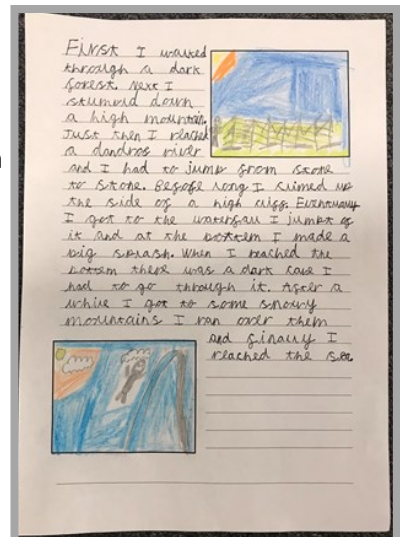 First I walked
through a dark
forest. Next I
stumbld down
a high mountain.
Just then I reached
a dandros river
and I had to jump from stone
to stone. Before long I climed up
the side of a high cliff. Eventually
I got to the waterfall I jumpt of
it and at the bottem I made a
big splash. When I reached the
bottem there was a dark cave I
had to go through it. After a
while I got to some snowy
mountains I ran over them
and finally I
reached the sea